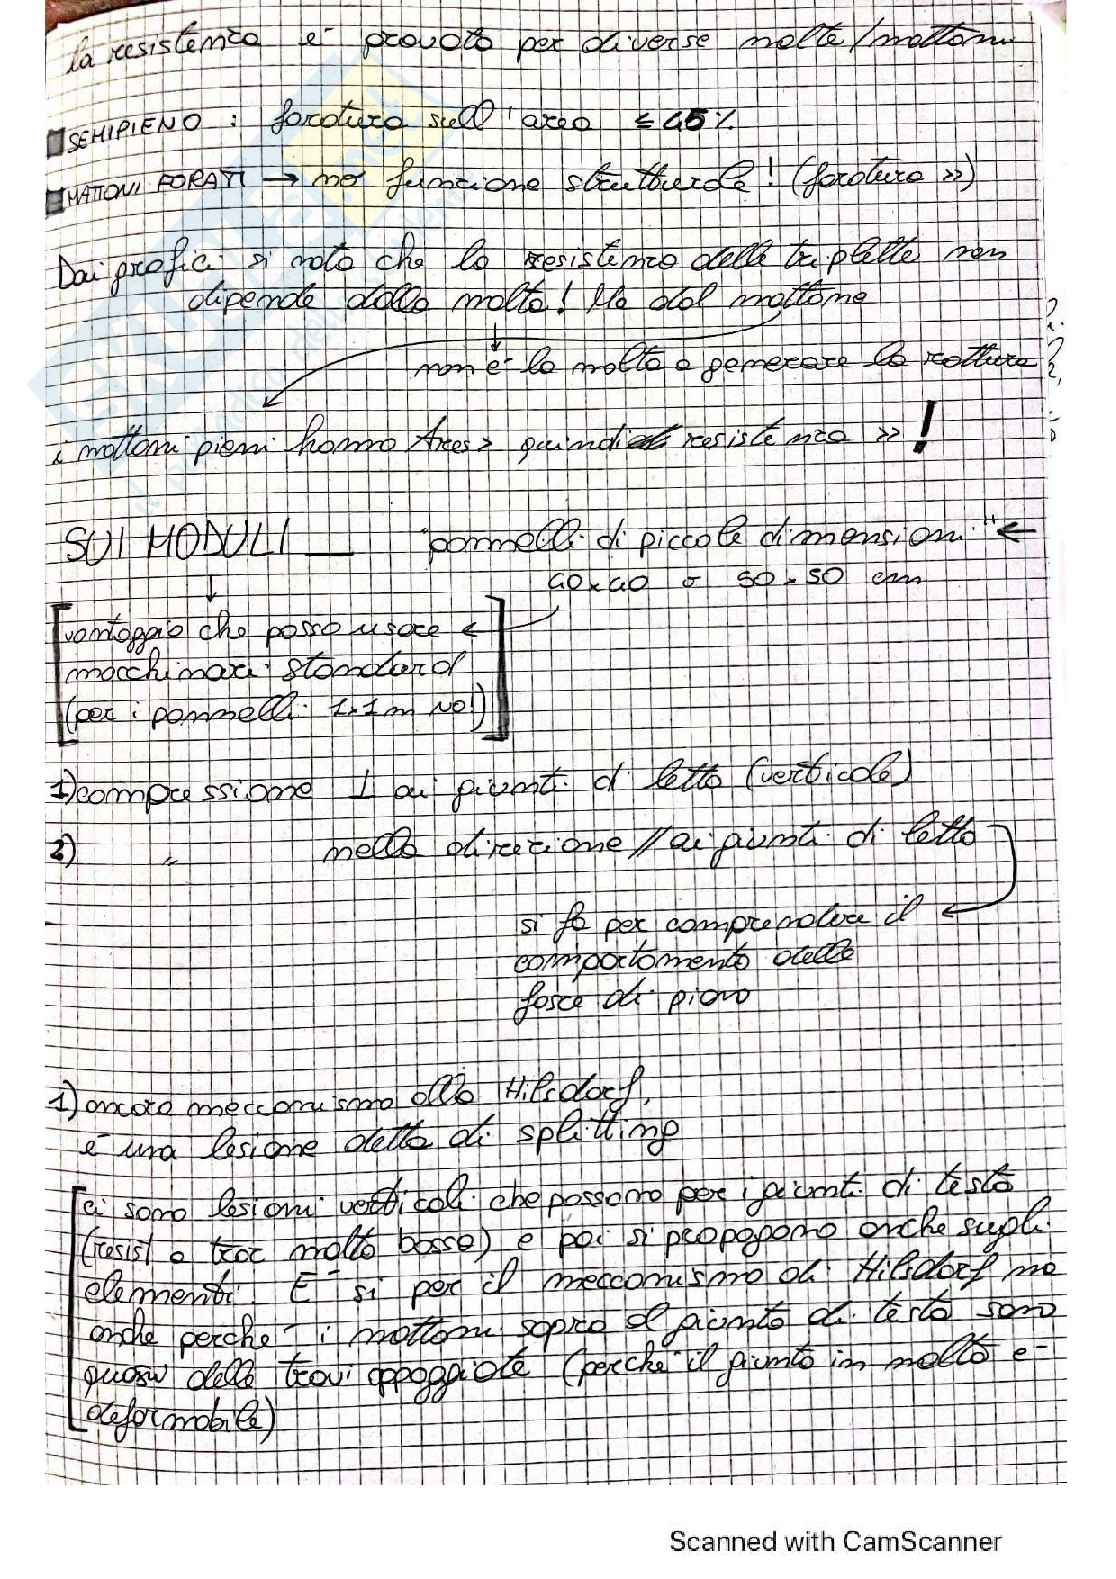 la resistenza è provata per diverse malte/mattoni
SEMIPIENO : foratura sull'area ≤ 45%
MATTONI FORATI → no funzione strutturale! (foratura >>)
Dai grafici si nota che la resistenza delle triplette non
dipende dalla malta! Ma dal mattone
non è la malta a generare la rottura
i mattoni pieni hanno Ares > quindi resistenza >> !
SUI MODULI __ "pannelli di piccole dimensioni" ←
40x40 o 50x50 cm
[vantaggio che posso usare ←
macchinari standard
(per i pannelli 1x1m no!)]
1) compressione ⊥ ai giunti di letto (verticale)
2) " nella direzione // ai giunti di letto
si fa per comprendere il ←
comportamento delle
fasce di piano
1) ancora meccanismo alla Hilsdorf,
è una lesione detta di splitting
[ci sono lesioni verticali che passano per i giunti di testa
(resist a traz molto bassa) e poi si propagano anche sugli
elementi. È si per il meccanismo di Hilsdorf ma
anche perchè i mattoni sopra al giunto di testa sono
quasi delle travi appoggiate (perchè il giunto in malta è
deformabile)
Scanned with CamScanner